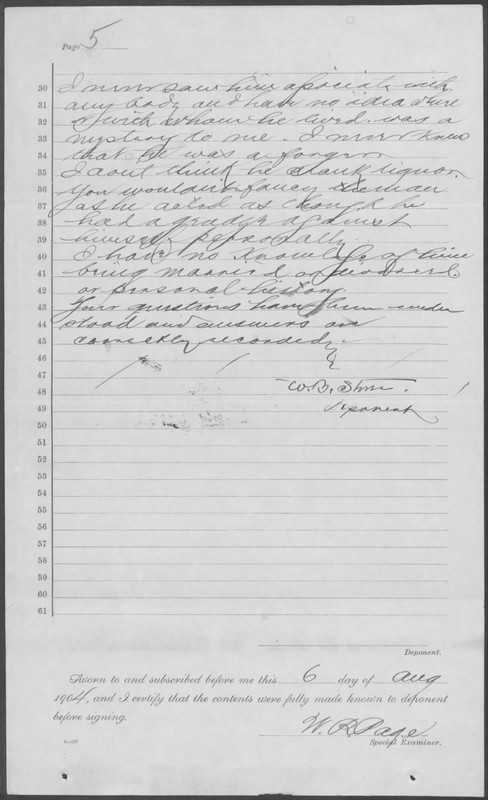 Page 5
30 I never saw him associate with
31 any body and have no idea where
32 or with whom he lived. was a
33 mystery to me. I never knew
34 that he was a forger.
35 I dont think he drank liquor.
36 You wouldn't fancy the man
37 as he acted as though he
38 had a grudge against
39 himself personally
40 I have no knowledge of him
41 being married or
42 or personal history
43 Your questions have been under
44 stood and answers are
45 correctly recorded.
46
47
48 W. B.
49 Deponent
50
51
52
53
54
55
56
57
58
59
60
61
Deponent.
Sworn to and subscribed before me this 6 day of Aug
1904, and I certify that the contents were fully made known to deponent
before signing.
W. R. Page
Special Examiner.